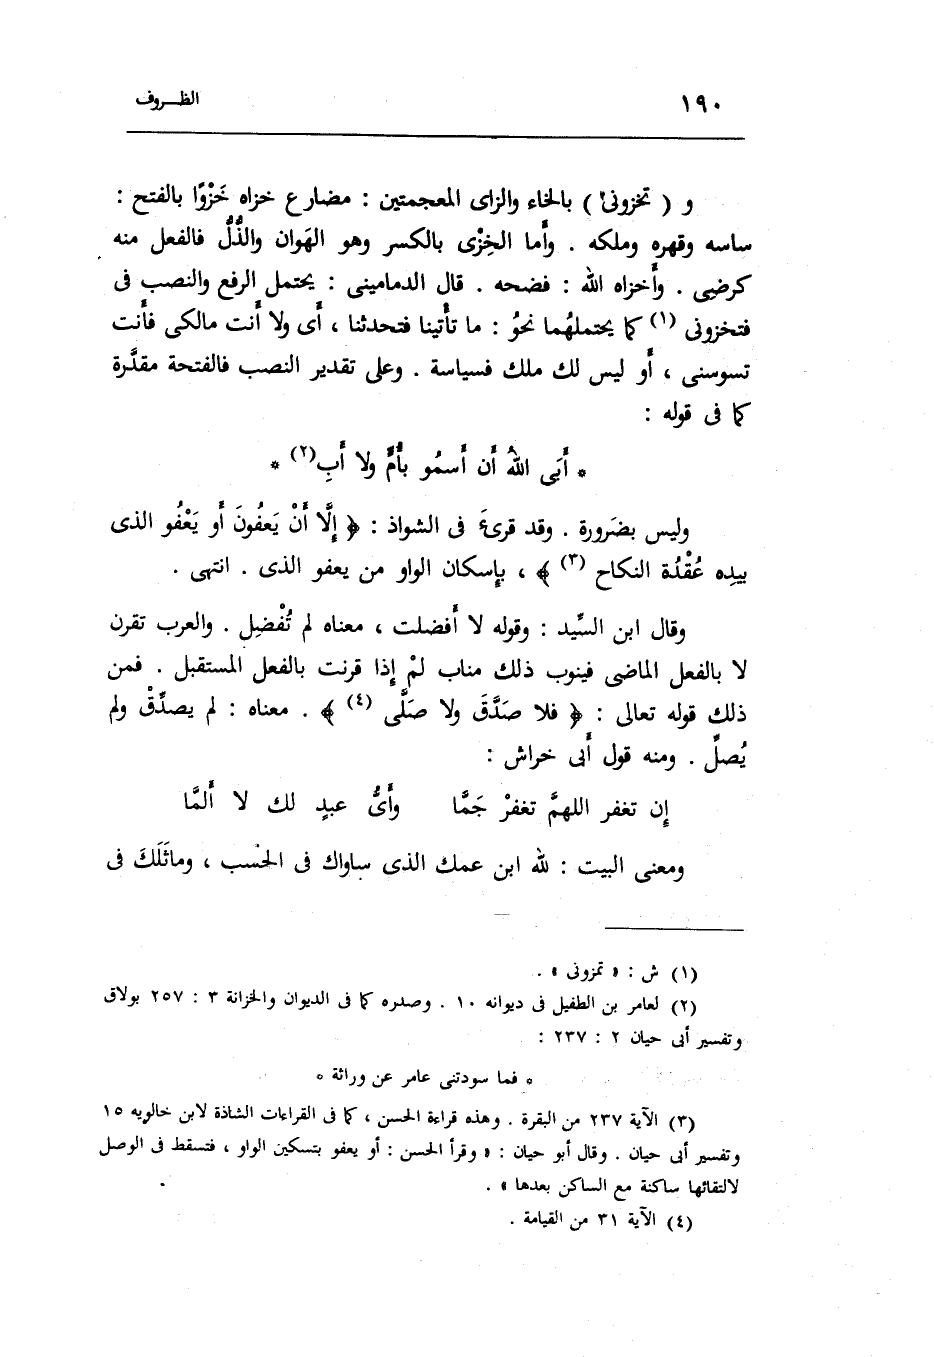 ١٩٠
الظــروف
و ( تخزونى ) بالخاء والزاى المعجمتين : مضارع خزاه خَزْوًا بالفتح :
ساسه وقهره وملكه . وأما الخِزْى بالكسر وهو الهَوان والذُّلُّ فالفعل منه
كرضِى . وأخزاه الله : فضحه . قال الدمامينى : يحتمل الرفع والنصب فى
فتخزونى (١) كما يحتملهُما نحوُ : ما تأتينا فتحدثنا ، أى ولا أنت مالكى فأنت
تسوسنى ، أو ليس لك ملك فسياسة . وعلى تقدير النصب فالفتحة مقدَّرة
كما فى قوله :
* أَبَى اللهُ أن أسمُو بأُمٍّ ولا أَبِ(٢) *
وليس بضَرورة . وقد قرئَ فى الشواذ : ﴿ إلَّا أَنْ يَعفُونَ أو يَعْفُو الذى
بيدِه عُقْدُة النكاح (٣) ﴾ ، بإسكان الواو من يعفو الذى . انتهى .
وقال ابن السِّيد : وقوله لا أفضلت ، معناه لم تُفْضِل . والعرب تقرن
لا بالفعل الماضى فينوب ذلك مناب لمْ إذا قرنت بالفعل المستقبل . فمن
ذلك قوله تعالى : ﴿ فلا صَدَّقَ ولا صَلَّى (٤) ﴾ . معناه : لم يصدِّقْ ولم
يُصلِّ . ومنه قول أبى خراش :
إن تغفر اللهمَّ تغفرْ جَمَّا وأىُّ عبدٍ لك لا ألمَّا
ومعنى البيت : لله ابن عمك الذى ساواك فى الحسَب ، وماثَلَكَ فى
(١) ش : « تمزونى » .
(٢) لعامر بن الطفيل فى ديوانه ١٠ . وصدره كما فى الديوان والخزانة ٣ : ٢٥٧ بولاق
وتفسير أبى حيان ٢ : ٢٣٧ :
* فما سودتنى عامر عن وراثة *
(٣) الآية ٢٣٧ من البقرة . وهذه قراءة الحسن ، كما فى القراءات الشاذة لابن خالويه ١٥
وتفسير أبى حيان . وقال أبو حيان : « وقرأ الحسن : أو يعفو بتسكين الواو ، فتسقط فى الوصل
لالتقائها ساكنة مع الساكن بعدها » .
(٤) الآية ٣١ من القيامة .